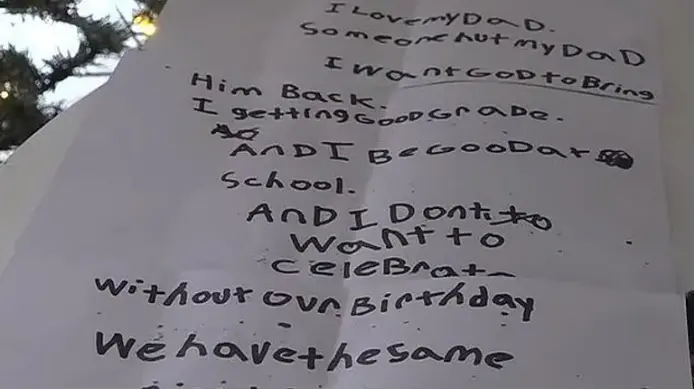 I Love my DaD.
Someone hut my DaD
I want GOD to Bring
Him Back.
I getting GOOD GraDe.
AnD I Be GOOD at
School.
AnD I Dont
want to
celeBrate
without our Birthday
We have the same